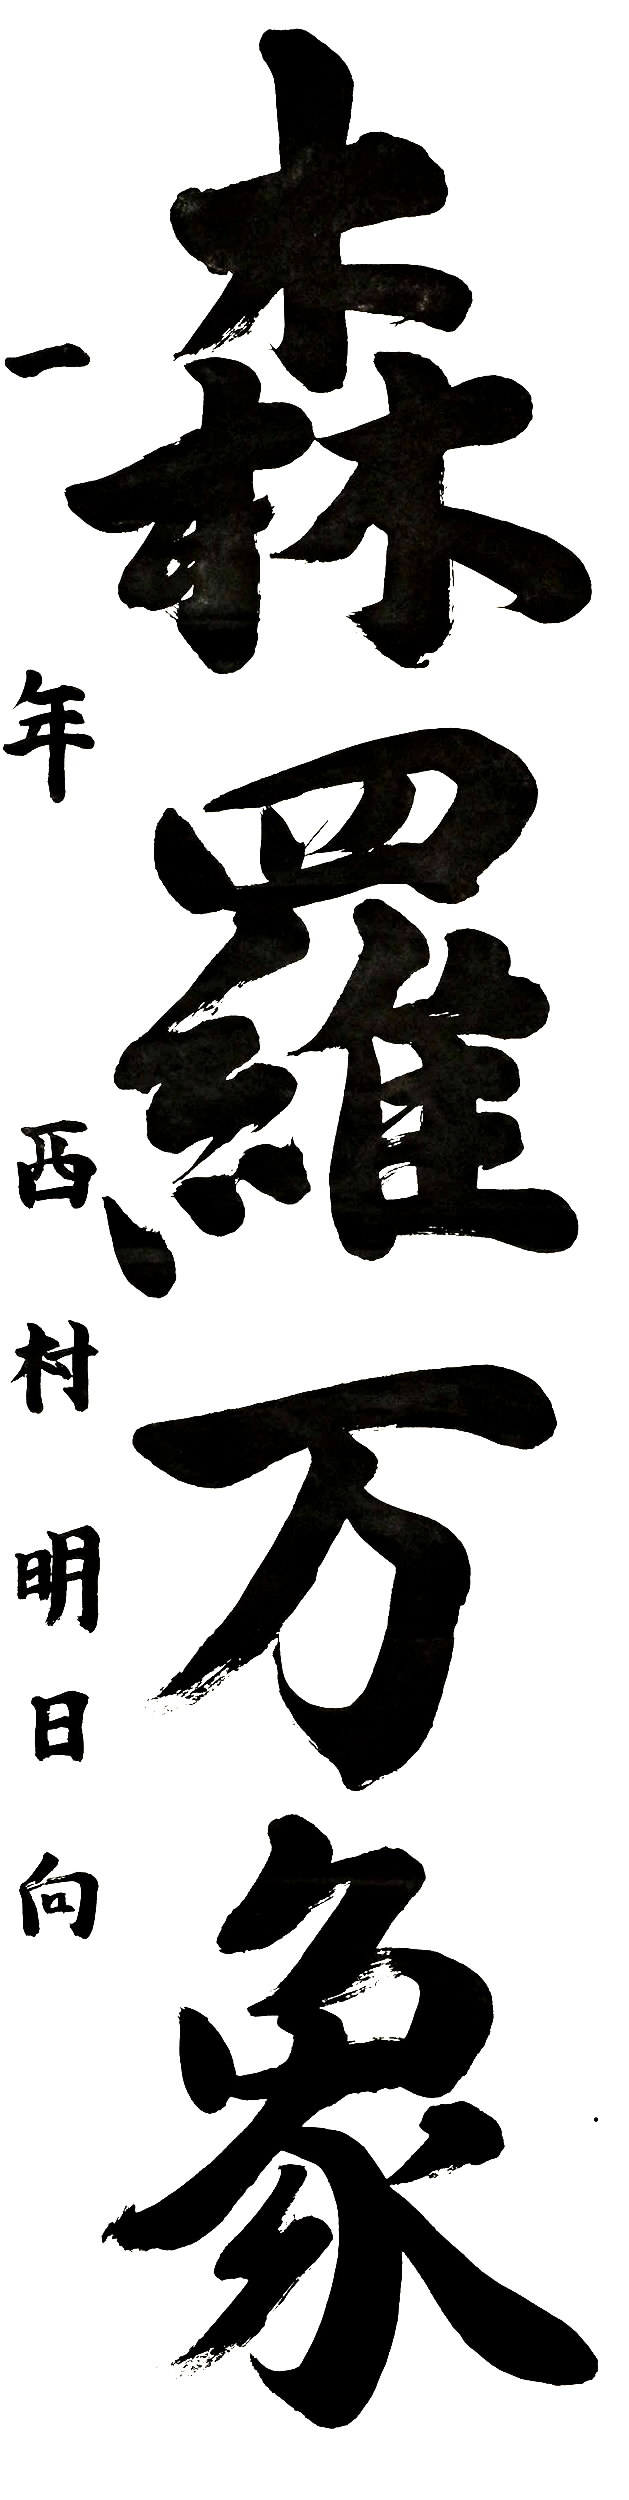 森羅万象
一年 西村明日向